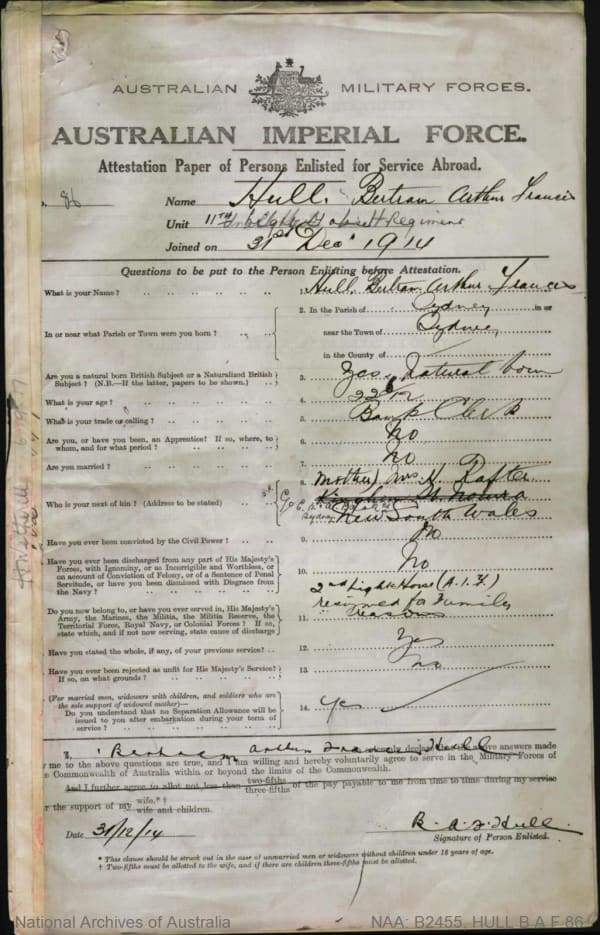 AUSTRALIAN MILITARY FORCES.
AUSTRALIAN IMPERIAL FORCE.
Attestation Paper of Persons Enlisted for Service Abroad.
86
Name Hull. Bertram Arthur Francis
Unit 11TH Regiment
Joined on 31st Dec 1914
Questions to be put to the Person Enlisting before Attestation.
What is your Name? 1. Hull. Bertram Arthur Francis
In or near what Parish or Town were you born? 2. In the Parish of Sydney in or
near the Town of Sydney
in the County of
Are you a natural born British Subject or a Naturalized British
Subject? (N.B.—If the latter, papers to be shown.) 3. Yes. Natural born
What is your age? 4. 22
What is your trade or calling? 5. Bank Clerk
Are you, or have you been, an Apprentice? If so, where, to
whom, and for what period? 6. No
Are you married? 7. No
Who is your next of kin? (Address to be stated) 8. (Mother) Mrs H. Rafter
St. Nowra
Sydney New South Wales
Have you ever been convicted by the Civil Power? 9. No
Have you ever been discharged from any part of His Majesty's
Forces, with Ignominy, or as Incorrigible and Worthless, or
on account of Conviction of Felony, or of a Sentence of Penal
Servitude, or have you been dismissed with Disgrace from
the Navy? 10. No
Do you now belong to, or have you ever served in, His Majesty's
Army, the Marines, the Militia, the Militia Reserve, the
Territorial Force, Royal Navy, or Colonial Forces? If so,
state which, and if not now serving, state cause of discharge 11. 2nd Light Horse (A.I.F.)
resigned for Family
reasons
Have you stated the whole, if any, of your previous service? 12. Yes
Have you ever been rejected as unfit for His Majesty's Service?
If so, on what grounds? 13. No
(For married men, widowers with children, and soldiers who are
the sole support of widowed mother)—
Do you understand that no Separation Allowance will be
issued to you after embarkation during your term of
service? 14. Yes
I, Bertram Arthur Francis Hull solemnly declare that the above answers made
me to the above questions are true, and I am willing and hereby voluntarily agree to serve in the Military Forces of
Commonwealth of Australia within or beyond the limits of the Commonwealth.
And I further agree to allot not less than two-fifths three-fifths of the pay payable to me from time to time during my service
for the support of my wife.*† wife and children.
Date 31/12/14
B. A. F. Hull.
Signature of Person Enlisted.
* This clause should be struck out in the case of unmarried men or widowers without children under 18 years of age.
† Two-fifths must be allotted to the wife, and if there are children three-fifths must be allotted.
National Archives of Australia
NAA: B2455, HULL B A F 86